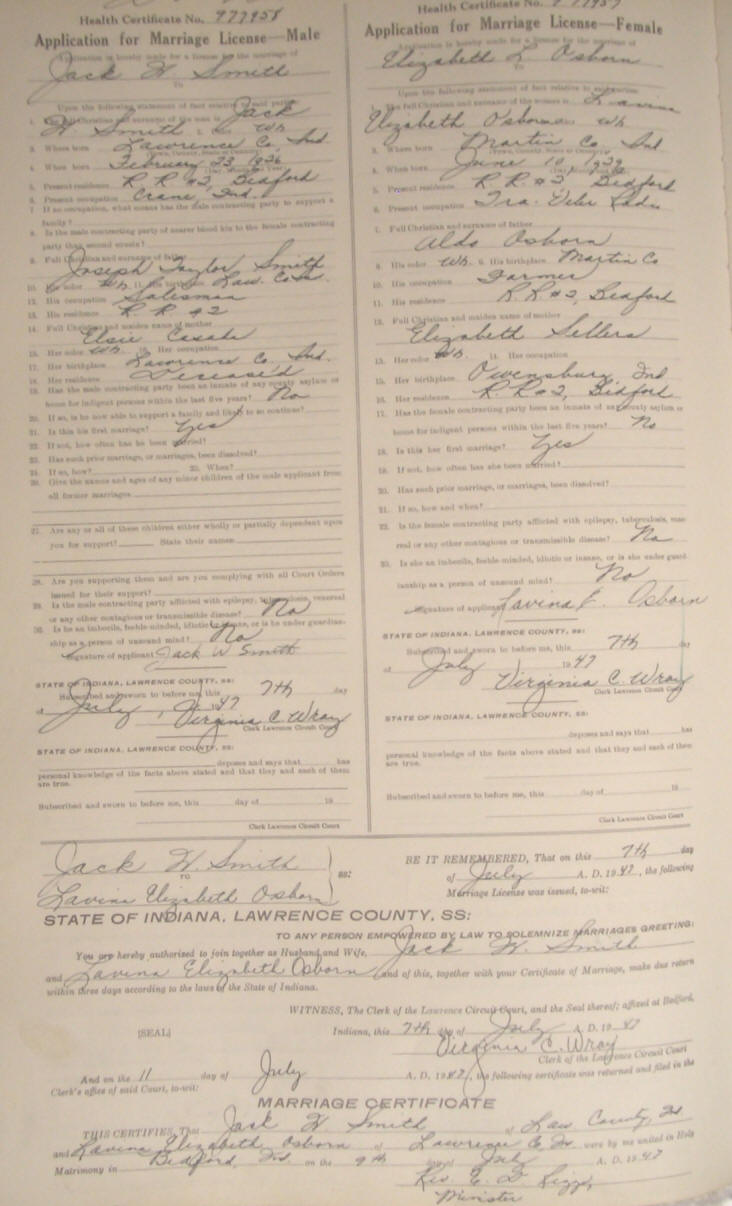 Health Certificate No. 977958
Application for Marriage License—Male
Application is hereby made for a license for the marriage of
Jack W. Smith
TO
Upon the following statement of fact relative to said parties
1. The full Christian and surname of the man is Jack
W. Smith 2. Wh
3. Where born Lawrence Co, Ind
(Town, County, State or Country)
4. When born February 23, 1926
(Day, Month and Year)
5. Present residence R. R. #2, Bedford
6. Present occupation Crane, Ind.
7. If no occupation, what means has the male contracting party to support a
family?
8. Is the male contracting party of nearer blood kin to the female contracting
party than second cousin?
9. Full Christian and surname of father
Joseph Taylor Smith
10. His color Wh. 11. His birthplace Law. Co. In.
12. His occupation Salesman
13. His residence R. R. #2
14. Full Christian and maiden name of mother
Elsie
15. Her color Wh. 16. Her occupation
17. Her birthplace Lawrence Co. Ind.
18. Her residence Deceased
19. Has the male contracting party been an inmate of any county asylum or
home for indigent persons within the last five years? No
20. If so, is he now able to support a family and likely to so continue?
21. Is this his first marriage? Yes
22. If not, how often has he been married?
23. Has such prior marriage, or marriages, been dissolved?
24. If so, how? 25. When?
26. Give the names and ages of any minor children of the male applicant from
all former marriages
27. Are any or all of these children either wholly or partially dependent upon
you for support? State their names
28. Are you supporting them and are you complying with all Court Orders
issued for their support?
29. Is the male contracting party afflicted with epilepsy, tuberculosis, venereal
or any other contagious or transmissible disease? No
30. Is he an imbecile, feeble-minded, idiotic or insane, or is he under guardian-
ship as a person of unsound mind? No
Signature of applicant Jack W Smith
STATE OF INDIANA, LAWRENCE COUNTY, SS:
Subscribed and sworn to before me, this 7th day
of July, 1947
Virginia C. Wray
Clerk Lawrence Circuit Court
STATE OF INDIANA, LAWRENCE COUNTY, SS:
deposes and says that has
personal knowledge of the facts above stated and that they and each of them
are true.
Subscribed and sworn to before me, this day of 19
Clerk Lawrence Circuit Court
Health Certificate No. 977957
Application for Marriage License—Female
Application is hereby made for a license for the marriage of
Elizabeth L. Osborn
TO
Upon the following statement of fact relative to
1. The full Christian and surname of the woman is Lavina
Elizabeth Osborn Wh
3. Where born Martin Co, Ind
(Town, County, State or Country)
4. When born June 10, 1929
(Day, Month and Year)
5. Present residence R. R. #2, Bedford
6. Present occupation
7. Full Christian and surname of father
Aldo Osborn
8. His color Wh. 9. His birthplace Martin Co
10. His occupation Farmer
11. His residence R. R. #2, Bedford
12. Full Christian and maiden name of mother
Elizabeth Sellers
13. Her color Wh. 14. Her occupation
15. Her birthplace Owensburg Ind
16. Her residence R. R. #2, Bedford
17. Has the female contracting party been an inmate of any county asylum or
home for indigent persons within the last five years? No
18. Is this her first marriage? Yes
19. If not, how often has she been married?
20. Has such prior marriage, or marriages, been dissolved?
21. If so, how and when?
22. Is the female contracting party afflicted with epilepsy, tuberculosis, vene-
real or any other contagious or transmissible disease? No
23. Is she an imbecile, feeble-minded, idiotic or insane, or is she under guard-
ianship as a person of unsound mind? No
Signature of applicant Lavina E. Osborn
STATE OF INDIANA, LAWRENCE COUNTY, SS:
Subscribed and sworn to before me, this 7th day
of July 1947
Virginia C. Wray
Clerk Lawrence Circuit Court
STATE OF INDIANA, LAWRENCE COUNTY, SS:
deposes and says that has
personal knowledge of the facts above stated and that they and each of them
are true.
Subscribed and sworn to before me, this day of 19
Clerk Lawrence Circuit Court
Jack W. Smith
TO
Lavina Elizabeth Osborn
ss:
BE IT REMEMBERED, That on this 7th day
of July A. D. 1947, the following
Marriage License was issued, to-wit:
STATE OF INDIANA, LAWRENCE COUNTY, SS:
TO ANY PERSON EMPOWERED BY LAW TO SOLEMNIZE MARRIAGES GREETING:
You are hereby authorized to join together as Husband and Wife, Jack W. Smith
and Lavina Elizabeth Osborn and of this, together with your Certificate of Marriage, make due return
within three days according to the laws of the State of Indiana.
WITNESS, The Clerk of the Lawrence Circuit Court, and the Seal thereof; affixed at Bedford,
(SEAL) Indiana, this 7th day of July A. D. 1947
Virginia C. Wray
Clerk of the Lawrence Circuit Court
And on the 11 day of July A. D. 1947, the following certificate was returned and filed in the
Clerk's office of said Court, to-wit:
MARRIAGE CERTIFICATE
THIS CERTIFIES, That Jack W Smith of Law. County, In
and Lavina Elizabeth Osborn of Lawrence Co In were by me united in Holy
Matrimony in Bedford, Ind. on the 9th day of July A. D. 1947
Rev. E. D.
Minister